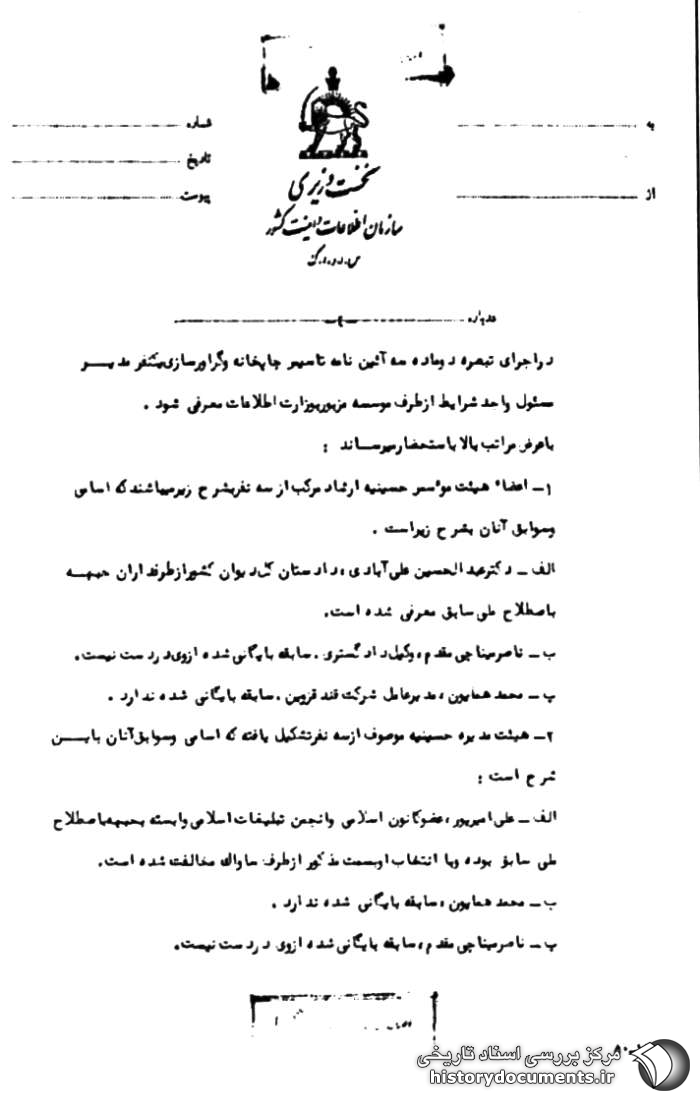 به
شماره
تاریخ
از
پیوست
نخست وزیری
سازمان اطلاعات و امنیت کشور
س.ا.و.ا.ک
درباره
-۲-
در اجرای تبصره دو ماده سه آئین نامه تاسیس چاپخانه وگراورسازی یکنفر مدیر
مسئول واجد شرایط ازطرف موسسه مزبور بوزارت اطلاعات معرفی شود .
باعرض مراتب بالا باستحضار میرساند :
۱ــ اعضاء هیئت موسس حسینیه ارشاد مرکب از سه نفر بشرح زیر میباشند که اسامی
وسوابق آنان بشرح زیر است .
الف ــ دکتر عبدالحسین علی آبادی ، دادستان کل دیوان کشور از طرفداران جبهه
باصطلاح ملی سابق معرفی شده است.
ب ــ ناصر میناچی مقدم ، وکیل دادگستری . سابقه بایگانی شده ازوی در دست نیست.
پ ــ محمد همایون ، مدیرعامل شرکت قند قزوین . سابقه بایگانی شده ندارد .
۲ــ هیئت مدیره حسینیه موصوف ازسه نفر تشکیل یافته که اسامی وسوابق آنان باین
شرح است :
الف ــ علی امیرپور ، عضو کانون اسلامی وانجمن تبلیغات اسلامی وابسته بجبهه باصطلاح
ملی سابق بوده وبا انتخاب اوبسمت مذکور ازطرف ساواک مخالفت شده است.
ب ــ محمد همایون ، سابقه بایگانی شده ندارد .
پ ــ ناصر میناچی مقدم ، سابقه بایگانی شده ازوی در دست نیست.
مرکز بررسی اسناد تاریخی
historydocuments.ir